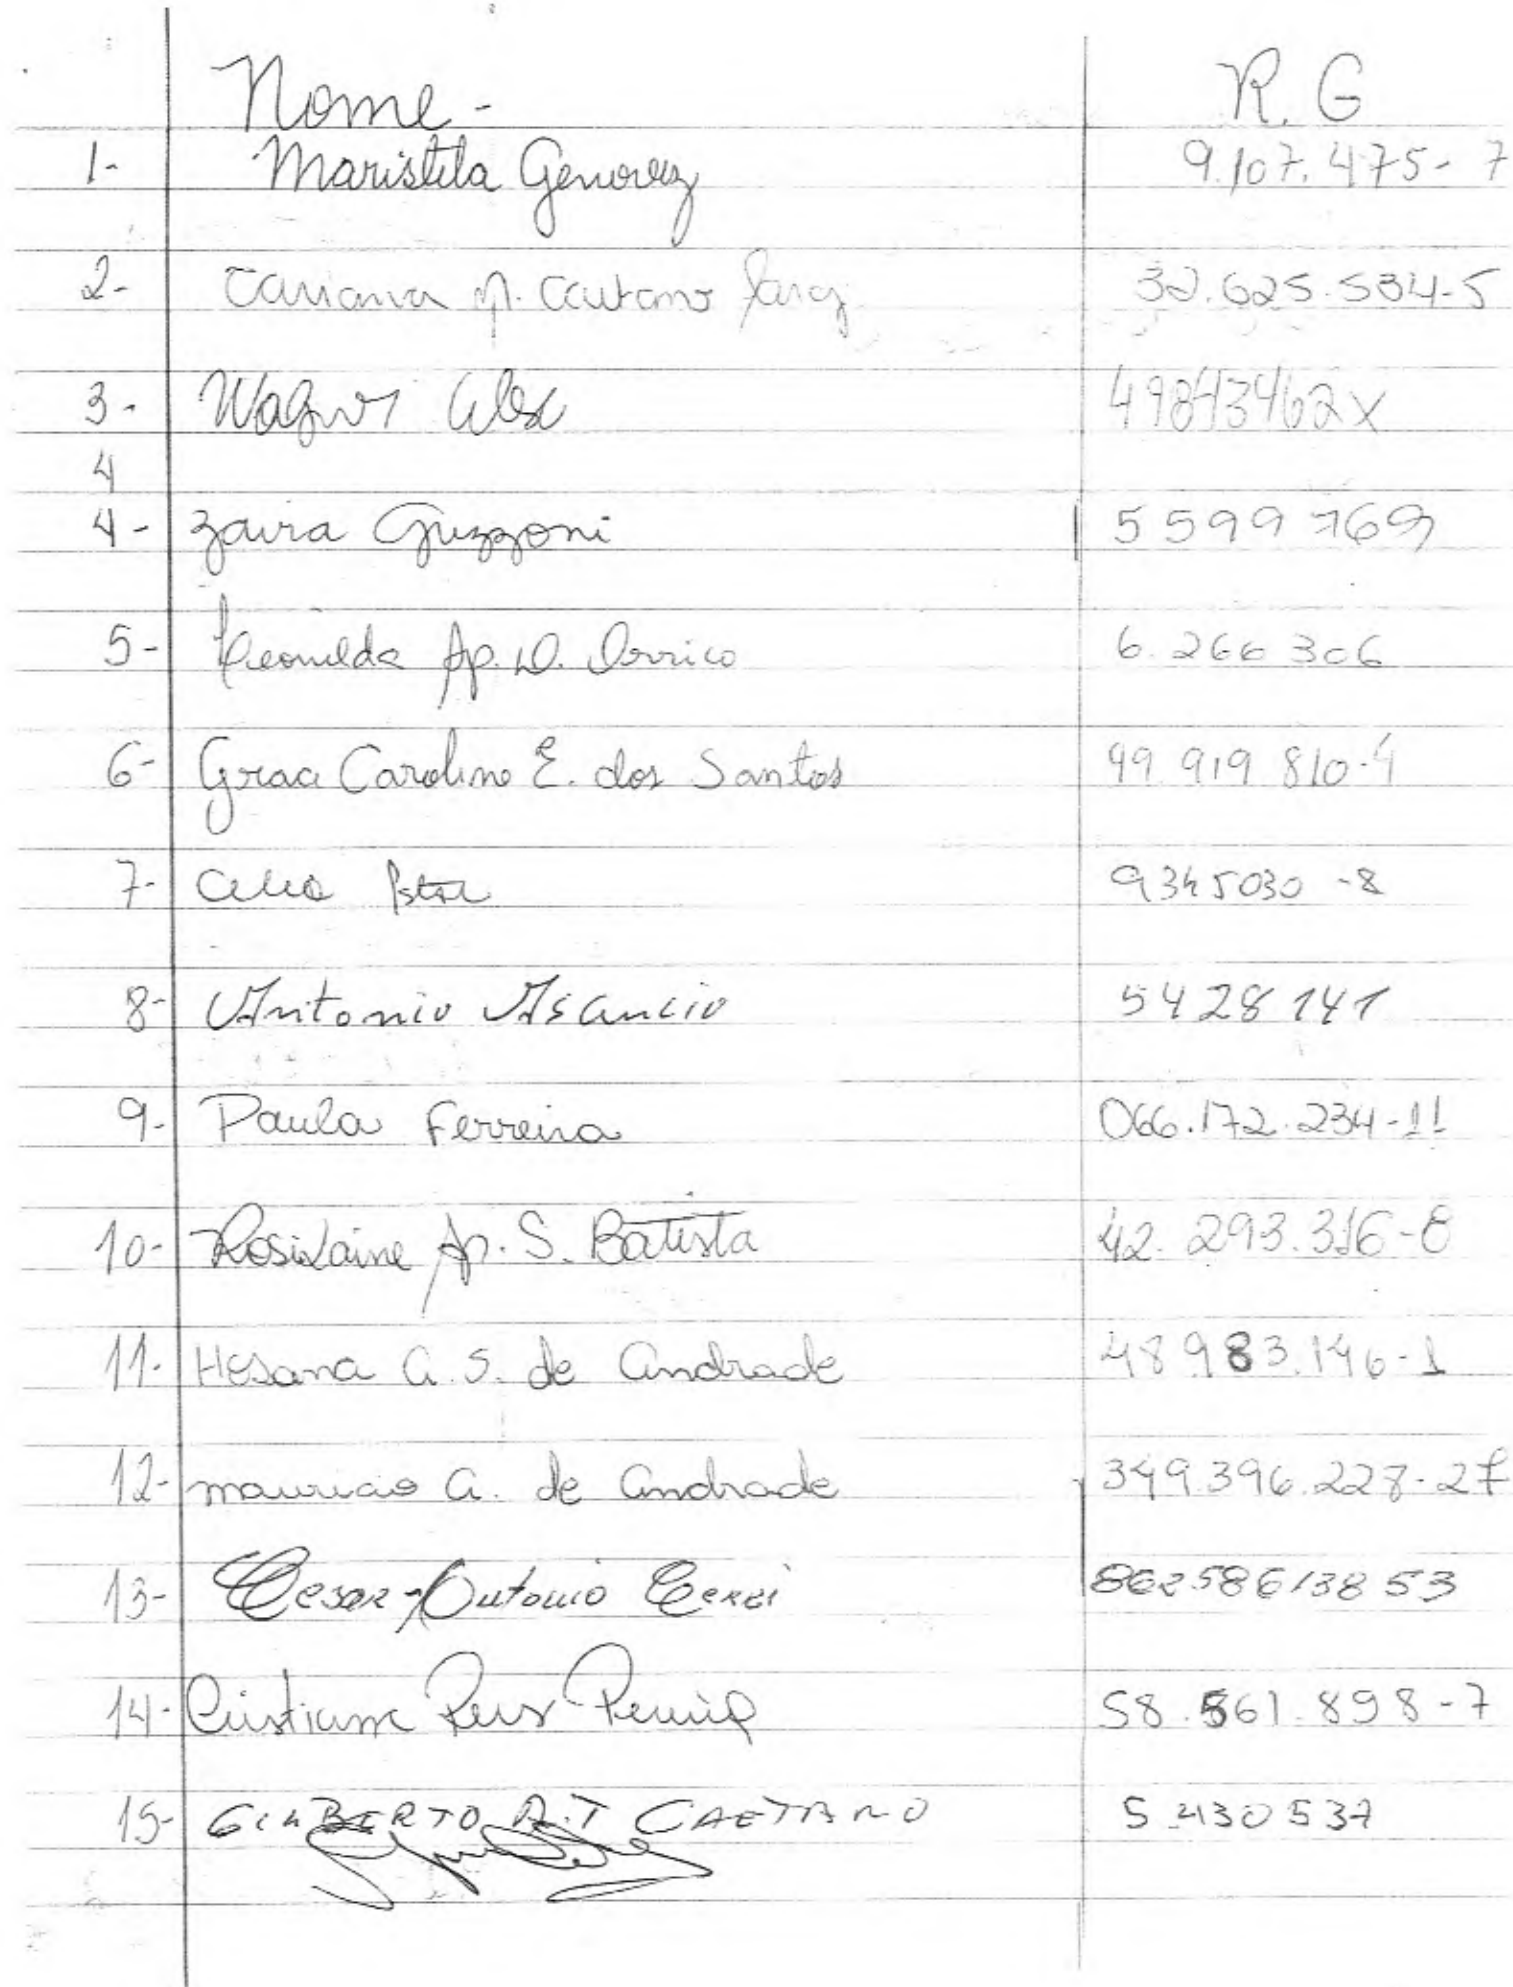 Nome - R. G
1- Maristela Genovez 9.107.475-7
2- 32.625.534-5
3- Wagner 49843462X
4
4- Zaira Guzzoni 5599769
5- Leonilda Ap. D. Orrico 6.266306
6- Graci Caroline E. dos Santos 49.919.810-4
7- Celia 9345030-8
8- Antonio Asancio 5428141
9- Paula Ferreira 066.172.234-11
10- Rosilaine Ap. S. Batista 42.293.316-8
11- Hosana A. S. de Andrade 48.983.146-1
12- mauricio A. de Andrade 349.396.228-27
13- Cesar Antonio Cerri 86258613853
14- Cristiane 58.561.898-7
15- GILBERTO A.T CAETANO 5.430537